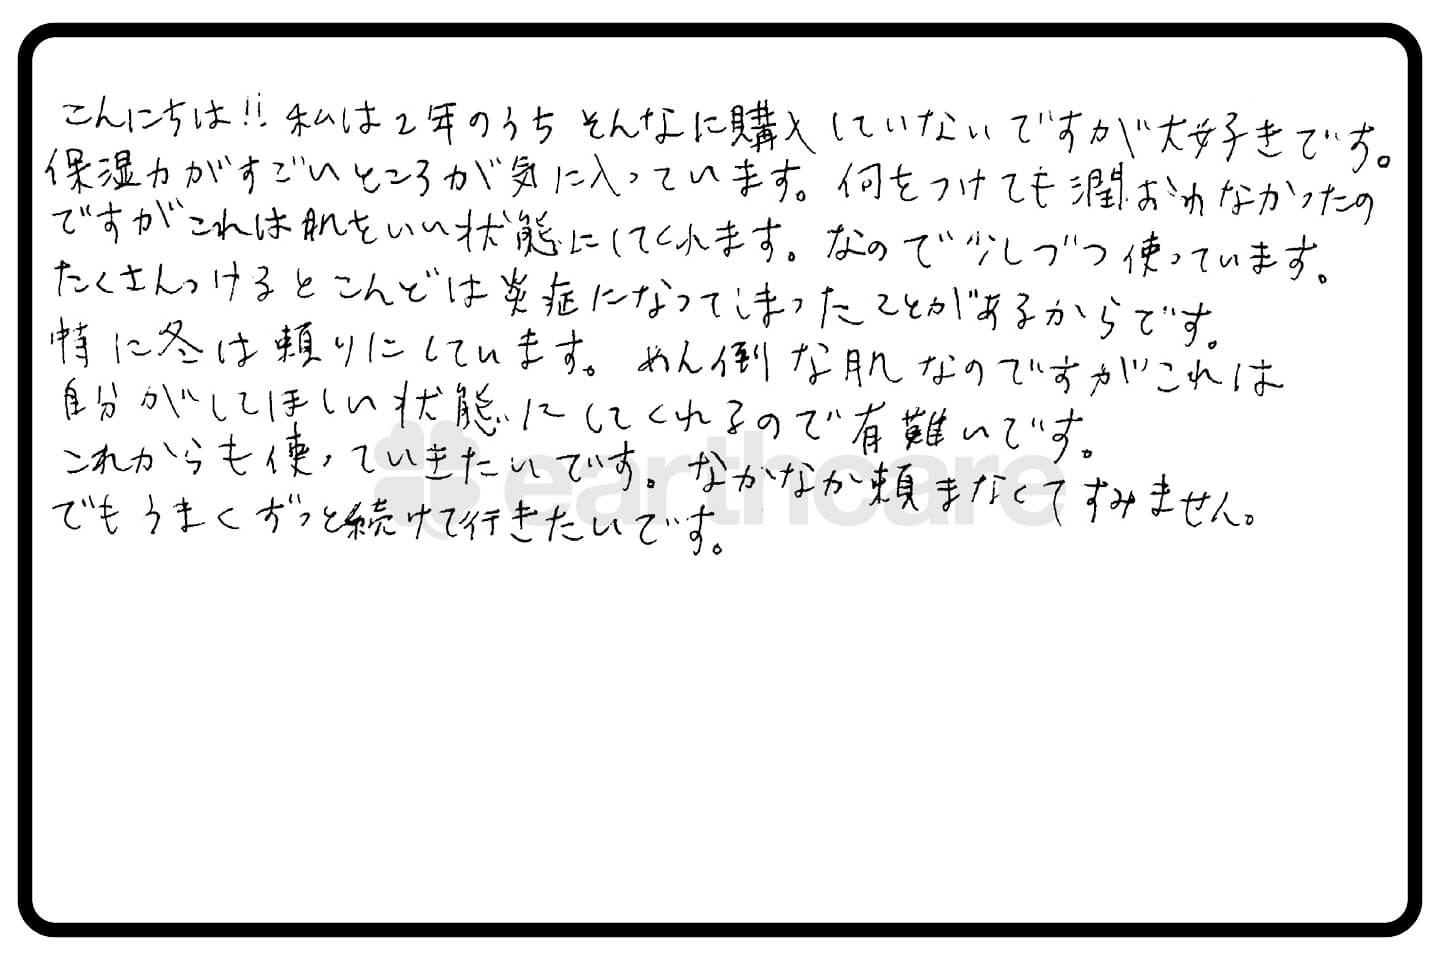 こんにちは!! 私は2年のうち そんなに購入していないですが大好きです。
保湿力がすごいところが気に入っています。何をつけても潤おわなかったの
ですがこれは肌をいい状態にしてくれます。なので少しづつ使っています。
たくさんつけるとこんどは炎症になってしまったことがあるからです。
特に冬は頼りにしています。めん倒な肌なのですがこれは
自分がしてほしい状態にしてくれるので有難いです。
これからも使っていきたいです。なかなか頼まなくてすみません。
でもうまくずっと続けて行きたいです。
earthcare